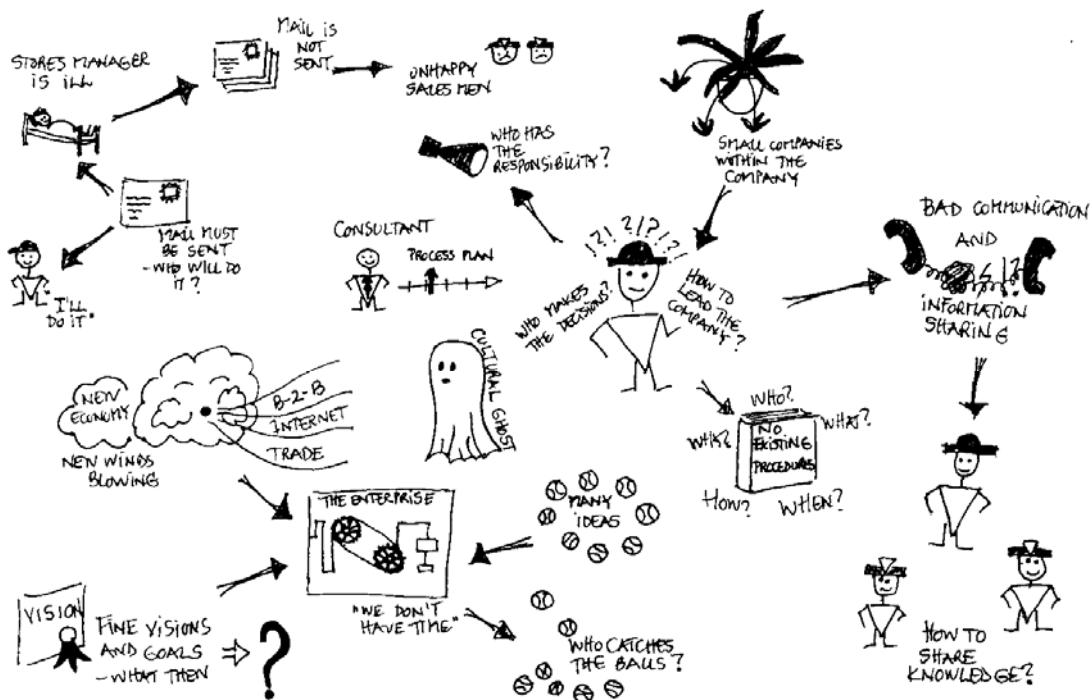 STORES MANAGER
IS ILL
MAIL IS
NOT
SENT
UNHAPPY
SALES MEN
SMALL COMPANIES
WITHIN THE
COMPANY
WHO HAS
THE
RESPONSIBILITY?
MAIL MUST
BE SENT
-WHO WILL DO
IT?
"I'LL
DO IT"
CONSULTANT
PROCESS PLAN
!?! ?!?!?!
WHO MAKES
THE DECISIONS?
HOW TO
LEAD THE
COMPANY?
BAD COMMUNICATION
AND
!?
INFORMATION
SHARING
CULTURAL GHOST
NEW
ECONOMY
NEW WINDS
BLOWING
B-2-B
INTERNET
TRADE
WHO?
WHAT?
WHAT?
NO
EXISTING
PROCEDURES
HOW?
WHEN?
THE ENTERPRISE
MANY
IDEAS
"WE DON'T
HAVE TIME"
WHO CATCHES
THE BALLS?
VISION
FINE VISIONS
AND GOALS
-WHAT THEN
?
HOW TO
SHARE
KNOWLEDGE?